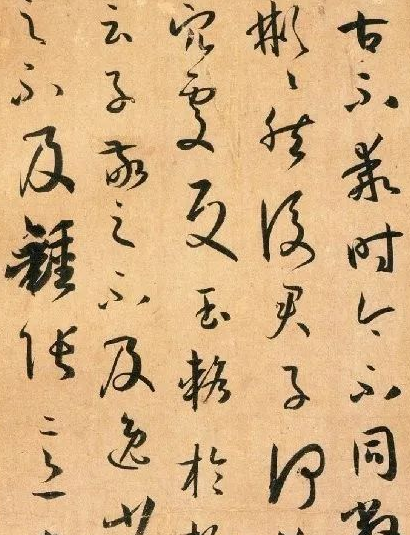 古不乖時今不同弊
彬〻然後君子何
穴處反玉輅於
云子敬之不及逸少
之不及鍾張意